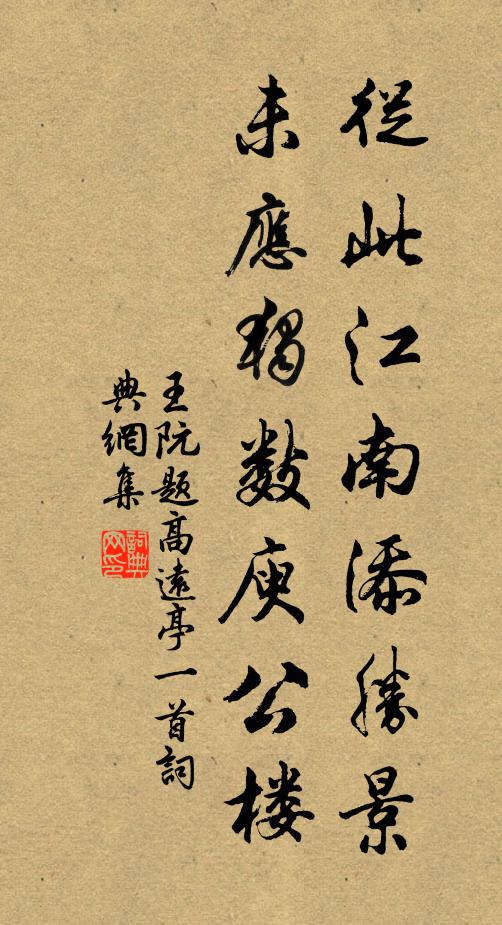 從此江南添勝景
未應獨數庾公楼
王阮題高遠亭一首詞
典網集
詞典
网印